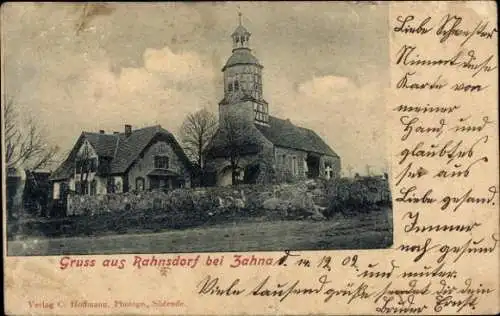 Liebe Schwester
Nimmt diese
Karte von
meiner
Hand und
glaubts
Liebe gesand
Immer noch
gesund
Gruss aus Rahnsdorf bei Zahna.
12. 02
und munter
Viele tausend Grüße sendet dir dein
Bruder Ernst
Verlag C. Hoffmann, Photogr., Südende.